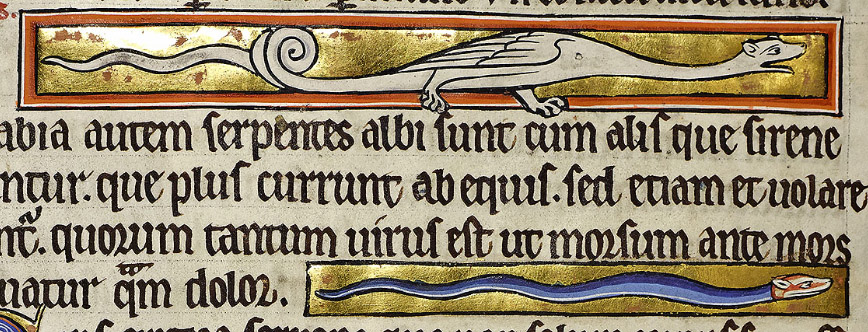 abia autem serpentes albi sunt cum alis que sirene
ntur. que plus currunt ab equis. sed etiam et uolare
quorum tantum uirus est ut morsum ante mors
uatur qm dolor.